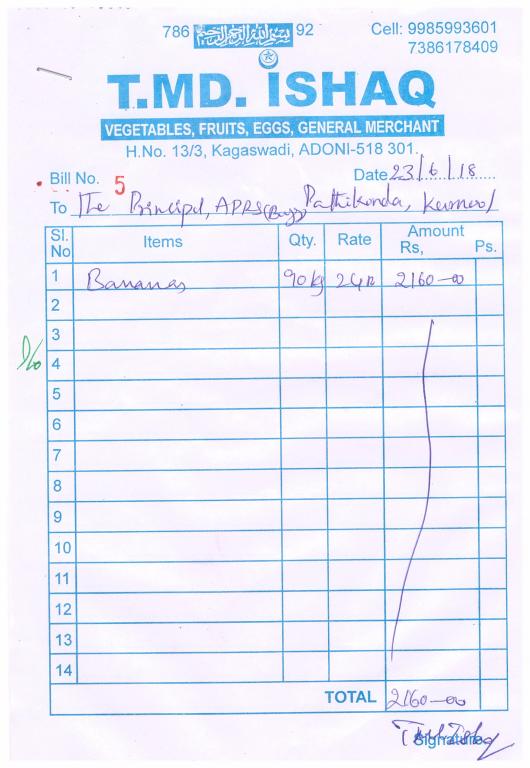 786 بسم الله الرحمن الرحيم 92 Cell: 9985993601
7386178409
T.MD. ISHAQ
VEGETABLES, FRUITS, EGGS, GENERAL MERCHANT
H.No. 13/3, Kagaswadi, ADONI-518 301.
Bill No. 5 Date 23/6/18
To The Principal, APRS(Boys) Pathikonda, Kurnool
Sl. No Items Qty. Rate Amount Rs, Ps.
1 Bananas 90 kg 24 2160-00
2
3
4
5
6
7
8
9
10
11
12
13
14
TOTAL 2160-00
Signature